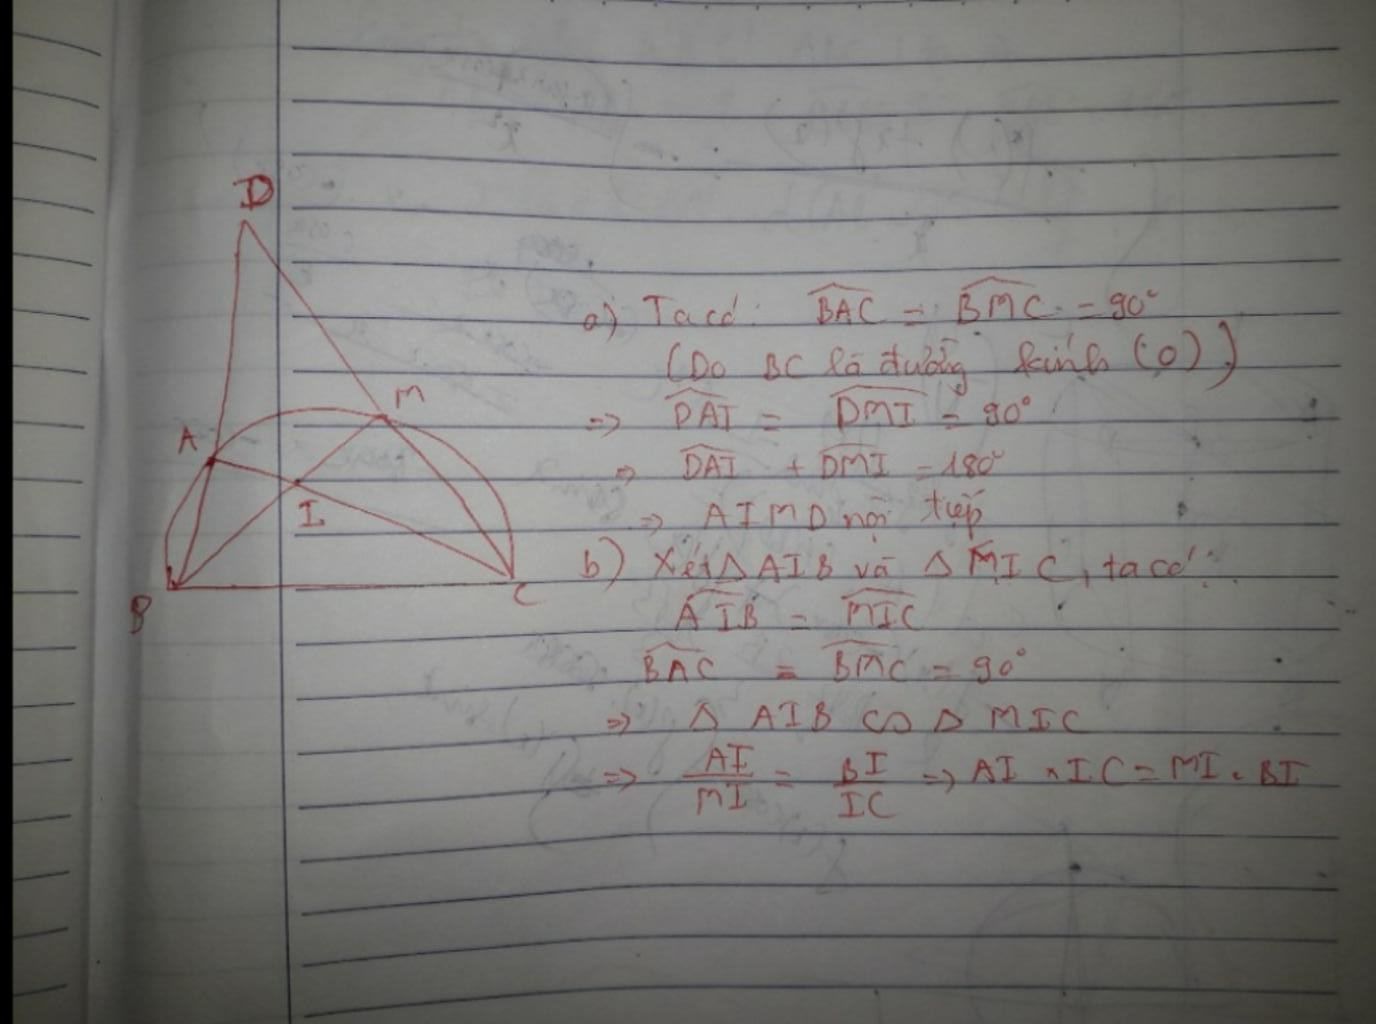 D
M
A
I
B
C
a) Ta có: BAC = BMC = 90°
(Do BC là đường kính (O))
=> DAI = DMI = 90°
=> DAI + DMI = 180°
=> AIMD nội tiếp
b) Xét Δ AIB và Δ MIC, ta có:
AIB = MIC
BAC = BMC = 90°
=> Δ AIB ∽ Δ MIC
=> AI/MI = BI/IC => AI . IC = MI . BI